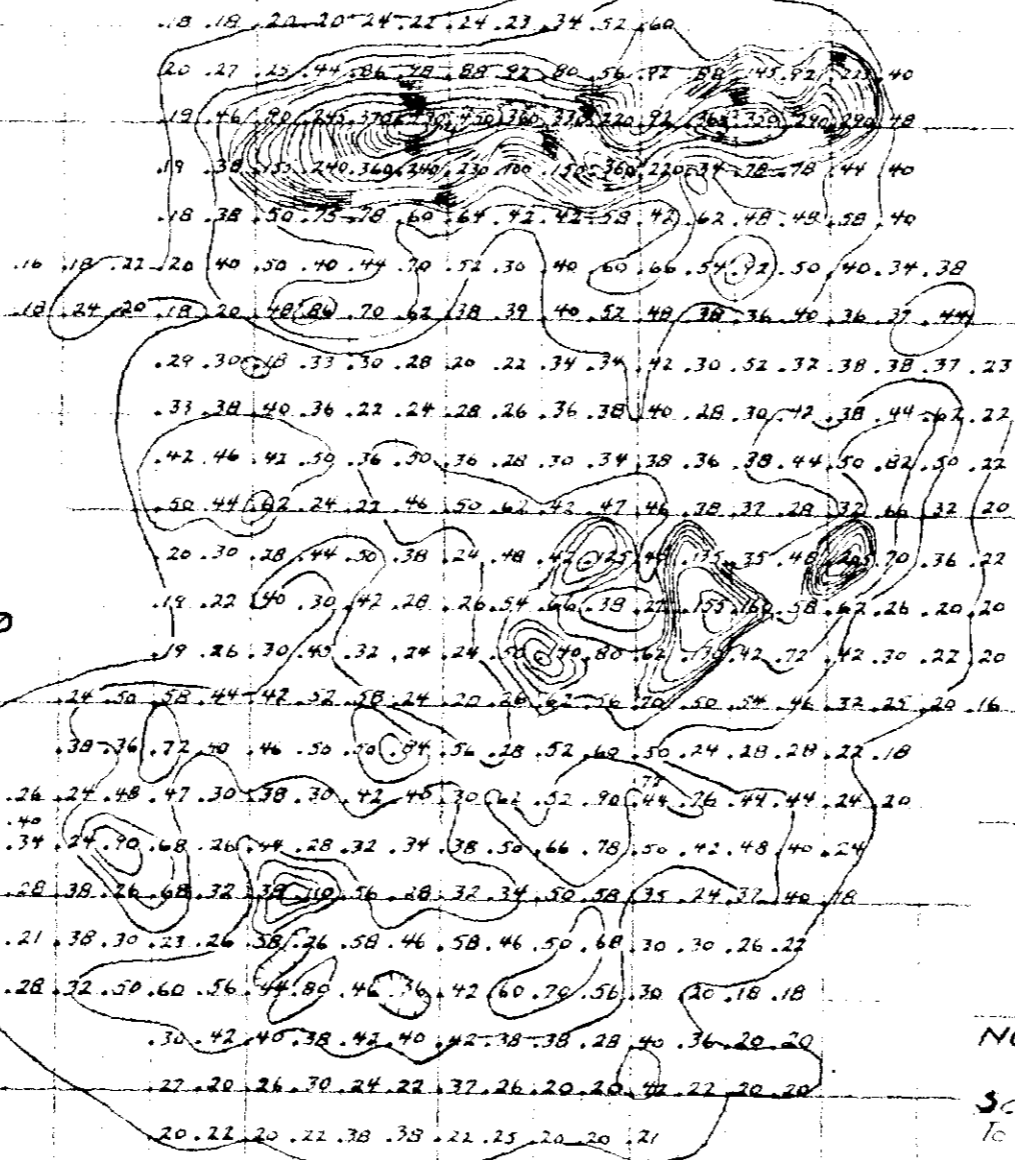 .18 .18 .20 .20 .24 .22 .24 .23 .34 .52 .60
.20 .27 .25 .44 .86 .98 .88 .92 .80 .56 .92 .88 .145 .92 .225 .40
.19 .46 .90 .245 .370 .450 .360 .330 .220 .92 .350 .290 .290 .48
.19 .38 .155 .240 .360 .240 .230 .100 .150 .360 .220 .34 .78 .78 .44 .40
.18 .38 .50 .75 .78 .60 .64 .42 .42 .58 .42 .62 .48 .48 .58 .40
.16 .18 .22 .20 .40 .50 .40 .44 .70 .52 .30 .40 .60 .66 .54 .92 .50 .40 .34 .38
.18 .24 .20 .18 .20 .48 .86 .70 .62 .38 .39 .40 .52 .48 .38 .36 .40 .36 .37 .44
.29 .30 .18 .33 .30 .28 .20 .22 .34 .34 .42 .30 .52 .32 .38 .38 .37 .23
.33 .38 .40 .36 .22 .24 .28 .26 .36 .38 .40 .28 .30 .42 .38 .44 .62 .22
.42 .46 .42 .50 .36 .50 .36 .28 .30 .34 .38 .36 .38 .44 .50 .82 .50 .22
.50 .44 .62 .24 .22 .46 .50 .62 .42 .47 .46 .38 .37 .28 .32 .66 .32 .20
.20 .30 .28 .44 .50 .38 .24 .48 .42 .125 .40 .135 .35 .48 .205 .70 .36 .22
.19 .22 .40 .30 .42 .28 .26 .54 .66 .38 .22 .155 .160 .58 .62 .26 .20 .20
.19 .26 .30 .45 .32 .24 .24 .50 .140 .80 .62 .130 .42 .72 .42 .30 .22 .20
.24 .50 .58 .44 .42 .52 .58 .24 .20 .26 .62 .56 .70 .50 .54 .46 .32 .25 .20 .16
.38 .36 .72 .40 .46 .50 .50 .84 .56 .28 .52 .60 .50 .24 .28 .28 .22 .18
.75
.26 .24 .48 .47 .30 .38 .30 .42 .40 .30 .62 .52 .90 .44 .76 .44 .44 .24 .20
.40
.34 .24 .90 .68 .26 .44 .28 .32 .34 .38 .50 .66 .78 .50 .42 .48 .40 .24
.28 .38 .26 .68 .32 .38 .110 .56 .28 .32 .34 .50 .58 .35 .24 .37 .40 .18
.21 .38 .30 .23 .26 .58 .26 .58 .46 .58 .46 .50 .68 .30 .30 .26 .22
.28 .32 .50 .60 .56 .44 .80 .46 .36 .42 .60 .70 .56 .30 .20 .18 .18
.30 .42 .40 .38 .42 .40 .42 .38 .38 .28 .40 .36 .20 .20
.27 .20 .26 .30 .24 .22 .37 .26 .20 .20 .42 .22 .20 .20
.20 .22 .20 .22 .38 .38 .22 .25 .20 .20 .21